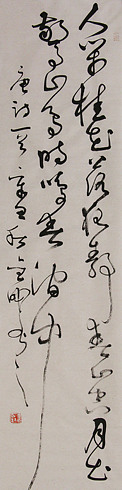 人閒桂花落夜静春山空月出
驚山鳥時鳴春澗中
唐詩一首辛丑秋